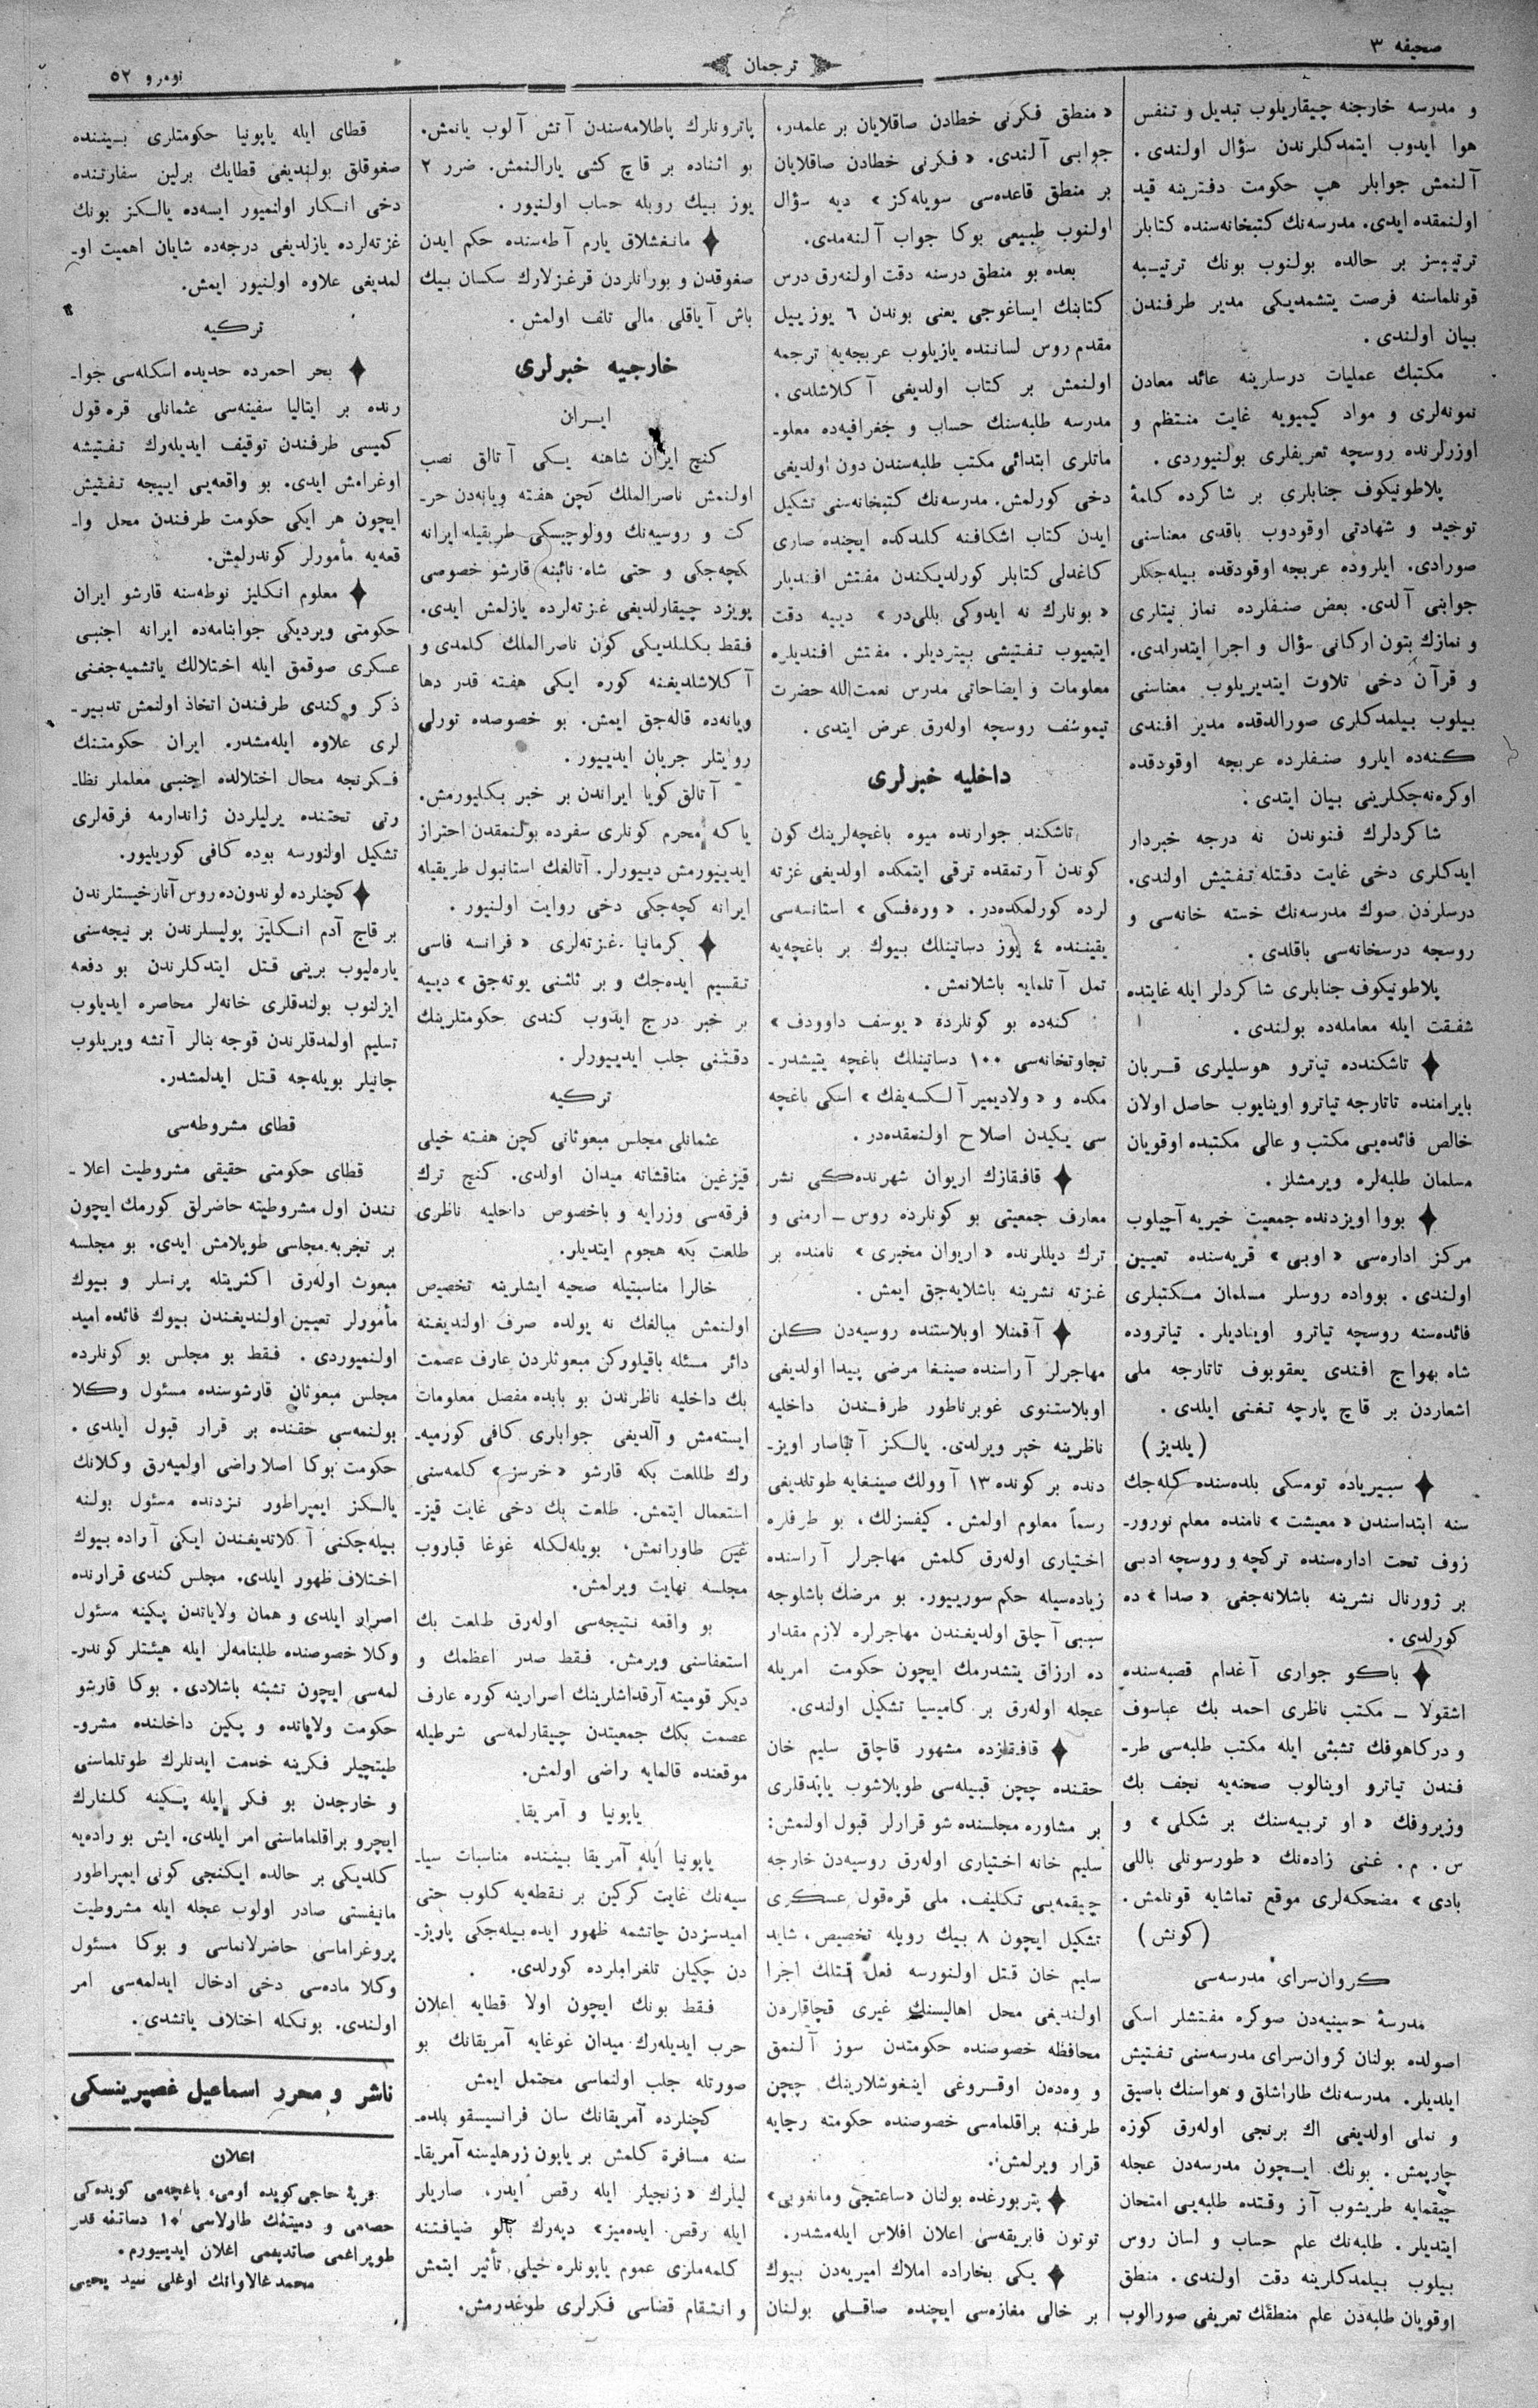 صحیفه ۳
ترجمان
نومرو ۵۲
و مدرسه خارجنه چیقاریلوب تبدیل و تنفس
هوا ایدوب ایتمدکلرندن سؤال اولندی.
آلنمش جوابلر هپ حکومت دفترینه قید
اولنمقده ایدی. مدرسه‌نك کتبخانه‌سنده کتابلر
ترتیبسز بر حالده بولنوب بونك ترتیبه
قونلماسنه فرصت یتشمدیکی مدیر طرفندن
بیان اولندی.
مکتبك عملیات درسلرینه عائد معادن
نمونه‌لری و مواد کیمیویه غایت منتظم و
اوزرلرنده روسچه تعریفلری بولنیوردی.
پلاطونیکوف جنابلری بر شاکرده کلمۀ
توحید و شهادتی اوقودوب باقدی معناسنی
صورادی. ایلروده عربجه اوقودقده بیله‌جکلر
جوابنی آلدی. بعض صنفلرده نماز نیتلری
و نمازك بتون ارکانی سؤال و اجرا ایتدرلدی.
و قرآن دخی تلاوت ایتدیریلوب معناسنی
بیلوب بیلمدکلری صورالدقده مدیر افندی
کنه‌ده ایلرو صنفلرده عربجه اوقودقده
اوکره‌نه‌جکلرینی بیان ایتدی.
شاکردلرك فنوندن نه درجه خبردار
ایدکلری دخی غایت دقتله تفتیش اولندی.
درسلردن صوك مدرسه‌نك خسته خانه‌سی و
روسچه درسخانه‌سی باقلدی.
پلاطونیکوف جنابلری شاکردلر ایله غایتده
شفقت ایله معامله‌ده بولندی.
تاشکندده تیاترو هوسلیلری قربان
بایرامنده تاتارجه تیاترو اوینایوب حاصل اولان
خالص فائده‌یی مکتب و عالی مکتبده اوقویان
مسلمان طلبه‌لره ویرمشلز.
بووا اویزدنده جمعیت خیریه آچیلوب
مرکز اداره‌سی «اوبی» قریه‌سنده تعیین
اولندی. بوواده روسلر مسلمان مکتبلری
فائده‌سنه روسچه تیاترو اوینادیلر. تیاتروده
شاه بهواج افندی یعقوبوف تاتارجه ملی
اشعاردن بر قاچ پارچه تغنی ایلدی.
(یلدیز)
سبیریاده تومسکی بلده‌سنده کله‌جك
سنه ابتداسندن «معیشت» نامنده معلم نورور-
زوف تحت اداره‌سنده ترکچه و روسچه ادبی
بر ژورنال نشرینه باشلانه‌جغی «صدا» ده
کورلدی.
باکو جواری آغدام قصبه‌سنده
اشقولا – مکتب ناظری احمد بك عباسوف
و درکاهوفك تشبثی ایله مکتب طلبه‌سی طر-
فندن تیاترو اوینالوب صحنه‌یه نجف بك
وزیروفك «او تربیه‌سنك بر شکلی» و
س. م. غنی زاده‌نك «طورسونلی باللی
بادی» مضحکه‌لری موقع تماشایه قونلمش.
(کونش)
کروان‌سرای مدرسه‌سی
مدرسۀ حسینیه‌دن صوکره مفتشلر اسکی
اصولده بولنان کروان‌سرای مدرسه‌سنی تفتیش
ایلدیلر. مدرسه‌نك طاراشلق و هواسنك باصیق
و نملی اولدیغی اك برنجی اوله‌رق کوزه
چارپمش. بونك ایچون مدرسه‌دن عجله
چیقمایه طریشوب آز وقتده طلبه‌یی امتحان
ایتدیلر. طلبه‌نك علم حساب و لسان روس
بیلوب بیلمدکلرینه دقت اولندی. منطق
اوقویان طلبه‌دن علم منطقك تعریفی صورالوب
«منطق فکرنی خطادن صاقلایان بر علمدر،
جوابی آلندی. «فکرنی خطادن صاقلایان
بر منطق قاعده‌سی سویله‌کز» دیه سؤال
اولنوب طبیعی بوکا جواب آلنه‌مدی.
بعده بو منطق درسنه دقت اولنه‌رق درس
کتابنك ایساغوجی یعنی بوندن ٦ یوز ییل
مقدم روس لساننده یازیلوب عربجه‌یه ترجمه
اولنمش بر کتاب اولدیغی آکلاشلدی.
مدرسه طلبه‌سنك حساب و جغرافیه‌ده معلو-
ماتلری ابتدائی مکتب طلبه‌سندن دون اولدیغی
دخی کورلمش. مدرسه‌نك کتبخانه‌سنی تشکیل
ایدن کتاب اشکافنه کلدکده ایچنده صاری
کاغدلی کتابلر کورلدیکندن مفتش افندیلر
«بونلرك نه ایدوکی بللی‌در» دییه دقت
ایتمیوب تفتیشی بیتردیلر. مفتش افندیلره
معلومات و ایضاحاتی مدرس نعمت‌الله حضرت
تیموشف روسچه اوله‌رق عرض ایتدی.
داخلیه خبرلری
تاشکند جوارنده میوه باغچه‌لرینك کون
کوندن آرتمقده ترقی ایتمکده اولدیغی غزته
لرده کورلمکده‌در. «وره‌فسکی» استانسه‌سی
یقیننده ٤ یوز دساتینلك بیوك بر باغچه‌یه
تمل آتلمایه باشلانمش.
کنه‌ده بو کونلرده «یوسف داوودف»
تجاوتخانه‌سی ۱۰۰ دساتینلك باغچه یتیشدر-
مکده و «ولادیمیر آلکسه‌یفك» اسکی باغچه
سی یکیدن اصلاح اولنمقده‌در.
قافقازك اریوان شهرنده‌کی نشر
معارف جمعیتی بو کونلرده روس – ارمنی و
ترك دیللرنده «اریوان مخبری» نامنده بر
غزته نشرینه باشلایه‌جق ایمش.
آقمنلا اوبلاستنده روسیه‌دن کلن
مهاجرلر آراسنده صینغا مرضی پیدا اولدیغی
اوبلاستنوی غوبرناطور طرفندن داخلیه
ناظرینه خبر ویرلدی. یالکز آتباصار اویز-
دنده بر کونده ۱۳ آوولك صینغایه طوتلدیغی
رسماً معلوم اولمش. کیفسزلك، بو طرفلره
اختیاری اوله‌رق کلمش مهاجرلر آراسنده
زیاده‌سیله حکم سورییور. بو مرضك باشلوجه
سببی آچلق اولدیغندن مهاجرلره لازم مقدار
ده ارزاق یتشدرمك ایچون حکومت امریله
عجله اوله‌رق بر کامیسیا تشکیل اولندی.
قافقازده مشهور قاچاق سلیم خان
حقنده چچن قبیله‌سی طوپلاشوب یاپدقلری
بر مشاوره مجلسنده شو قرارلر قبول اولنمش:
سلیم خانه اختیاری اوله‌رق روسیه‌دن خارجه
چیقمه‌یی تکلیف، ملی قره‌قول عسکری
تشکیل ایچون ۸ بیك روپله تخصیص، شاید
سلیم خان قتل اولنورسه فعل قتلك اجرا
اولندیغی محل اهالیسنك غیری قچاقلردن
محافظه خصوصنده حکومتدن سوز آلنمق
و وه‌ده‌ن اوقروغی اینغوشلارینك چچن
طرفنه براقلمامسی خصوصنده حکومته رجایه
قرار ویرلمش.
پتربورغده بولنان «ساعتچی ومانغوبی»
توتون فابریقه‌سی اعلان افلاس ایله‌مشدر.
یکی بخاراده املاك امیریه‌دن بیوك
بر خالی مغازه‌سی ایچنده صاقلی بولنان
پاترونلرك پاطلامه‌سندن آتش آلوب یانمش.
بو اثناده بر قاچ کشی یارالنمش. ضرر ۲
یوز بیك روبله حساب اولنیور.
مانغشلاق یارم آطه‌سنده حکم ایدن
صغوقدن و بورانلردن قرغزلارك سکسان بیك
باش آیاقلی مالی تلف اولمش.
خارجیه خبرلری
ایران
کنج ایران شاهنه یکی آتالق نصب
اولنمش ناصرالملك کچن هفته ویانه‌دن حر-
کت و روسیه‌نك وولوچیسکی طریقیله ایرانه
کچه‌جکی و حتی شاه نائبنه قارشو خصوصی
پویزد چیقارلدیغی غزته‌لرده یازلمش ایدی.
فقط بکلدیکی کون ناصرالملك کلمدی و
آکلاشلدیغنه کوره ایکی هفته قدر دها
ویانه‌ده قاله‌جق ایمش. بو خصوصده تورلی
روایتلر جریان ایدییور.
آتالق کویا ایراندن بر خبر بکلیورمش.
یاکه محرم کونلری سفرده بولنمقدن احتراز
ایدییورمش دییورلر. آتالغك استانبول طریقیله
ایرانه کچه‌جکی دخی روایت اولنیور.
کرمانیا غزته‌لری «فرانسه فاسی
تقسیم ایده‌جك و بر ثلثنی یوته‌جق» دییه
بر خبر درج ایدوب کندی حکومتلرینك
دقتنی جلب ایدییورلر.
ترکیه
عثمانلی مجلس مبعوثانی کچن هفته خیلی
قیزغین مناقشاته میدان اولدی. کنج ترك
فرقه‌سی وزرایه و باخصوص داخلیه ناظری
طلعت بکه هجوم ایتدیلر.
خالرا مناسبتیله صحیه ایشلرینه تخصیص
اولنمش مبالغك نه یولده صرف اولندیغنه
دائر مسئله باقیلورکن مبعوثلردن عارف عصمت
بك داخلیه ناظرندن بو بابده مفصل معلومات
ایسته‌مش و آلدیغی جوابلری کافی کورمیه-
رك طلعت بکه قارشو «خرسز» کلمه‌سنی
استعمال ایتمش. طلعت بك دخی غایت قیز-
غین طاورانمش، بویله‌لکله غوغا قباروب
مجلسه نهایت ویرلمش.
بو واقعه نتیجه‌سی اوله‌رق طلعت بك
استعفاسنی ویرمش. فقط صدر اعظمك و
دیکر قومیته آرقداشلرینك اصرارینه کوره عارف
عصمت بکك جمعیتدن چیقارلمه‌سی شرطیله
موقعنده قالمایه راضی اولمش.
یاپونیا و آمریقا
یاپونیا ایله آمریقا بیننده مناسبات سیا-
سیه‌نك غایت کرکین بر نقطه‌یه کلوب حتی
امیدسزدن چاتشمه ظهور ایده بیله‌جکی پاریژ-
دن چکیلن تلغرافلرده کورلدی.
فقط بونك ایچون اولا قطایه اعلان
حرب ایدیله‌رك میدان غوغایه آمریقانك بو
صورتله جلب اولنماسی محتمل ایمش
کچنلرده آمریقانك سان فرانسیسقو بلده-
سنه مسافرة کلمش بر یاپون زرهلیسنه آمریقا-
لیلرك «زنجیلر ایله رقص ایدر، صاریلر
ایله رقص ایده‌میز» دیه‌رك بالو ضیافتنه
کلمه‌ملری عموم یاپونلره خیلی تأثیر ایتمش
و انتقام قضاسی فکرلری طوغدرمش.
قطای ایله یاپونیا حکومتلری بیننده
صغوقلق بولندیغی قطایك برلین سفارتنده
دخی انکار اولنمیور ایسه‌ده یالکز بونك
غزته‌لرده یازلدیغی درجه‌ده شایان اهمیت او-
لمدیغی علاوه اولنیور ایمش.
ترکیه
بحر احمرده حدیده اسکله‌سی جوا-
رنده بر ایتالیا سفینه‌سی عثمانلی قره قول
کمیسی طرفندن توقیف ایدیله‌رك تفتیشه
اوغرامش ایدی. بو واقعه‌یی اییجه تفتیش
ایچون هر ایکی حکومت طرفندن محل وا-
قعه‌یه مأمورلر کوندرلمش.
معلوم انکلیز نوطه‌سنه قارشو ایران
حکومتی ویردیکی جوابنامه‌ده ایرانه اجنبی
عسکری صوقمق ایله اختلالك یاتشمیه‌جغنی
ذکر و کندی طرفندن اتخاذ اولنمش تدبیر-
لری علاوه ایله‌مشدر. ایران حکومتنك
فکرنجه محال اختلالده اجنبی معلملر نظا-
رتی تحتنده یرلیلردن ژاندارمه فرقه‌لری
تشکیل اولنورسه بوده کافی کوریلیور.
کچنلرده لوندون‌ده روس آنارخیستلرندن
بر قاچ آدم انکلیز پولیسلرندن بر نیجه‌سنی
یاره‌لیوب برینی قتل ایتدکلرندن بو دفعه
ایزلنوب بولندقلری خانه‌لر محاصره ایدیلوب
تسلیم اولمدقلرندن قوجه بنالر آتشه ویریلوب
جانیلر بویله‌جه قتل ایدلمشدر.
قطای مشروطه‌سی
قطای حکومتی حقیقی مشروطیت اعلا-
نندن اول مشروطیته حاضرلق کورمك ایچون
بر تجربه مجلسی طوپلامش ایدی. بو مجلسه
مبعوث اوله‌رق اکثریتله پرنسلر و بیوك
مأمورلر تعیین اولندیغندن بیوك فائده امید
اولنمیوردی. فقط بو مجلس بو کونلرده
مجلس مبعوثان قارشوسنده مسئول وکلا
بولنمه‌سی حقنده بر قرار قبول ایلدی.
حکومت بوکا اصلا راضی اولمیه‌رق وکلانك
یالکز ایمپراطور نزدنده مسئول بولنه
بیله‌جکنی آکلاتدیغندن ایکی آراده بیوك
اختلاف ظهور ایلدی. مجلس کندی قرارنده
اصرار ایلدی و همان ولایاتدن پکینه مسئول
وکلا خصوصنده طلبنامه‌لر ایله هیئتلر کوندر-
لمه‌سی ایچون تشبثه باشلادی. بوکا قارشو
حکومت ولایاتده و پکین داخلنده مشرو-
طیتچیلر فکرینه خدمت ایدنلرك طوتلماسنی
و خارجدن بو فکر ایله پکینه کلنلرك
ایچرو براقلماماسنی امر ایلدی. ایش بو راده‌یه
کلدیکی بر حالده ایکنجی کونی ایمپراطور
مانیفستی صادر اولوب عجله ایله مشروطیت
پروغراماسی حاضرلانماسی و بوکا مسئول
وکلا ماده‌سی دخی ادخال ایدلمه‌سی امر
اولندی. بونکله اختلاف یاتشدی.
ناشر و محرر اسماعیل غصپرینسکی
اعلان
قریۀ حاجی کویده اومی، باغچه‌می کویده‌کی
حصه‌می و دمیتفك طارلاسی ۱۰ دساتنه قدر
طوپراغمی صاتدیغمی اعلان ایدییورم.
محمد غالاوانك اوغلی سید یحیی